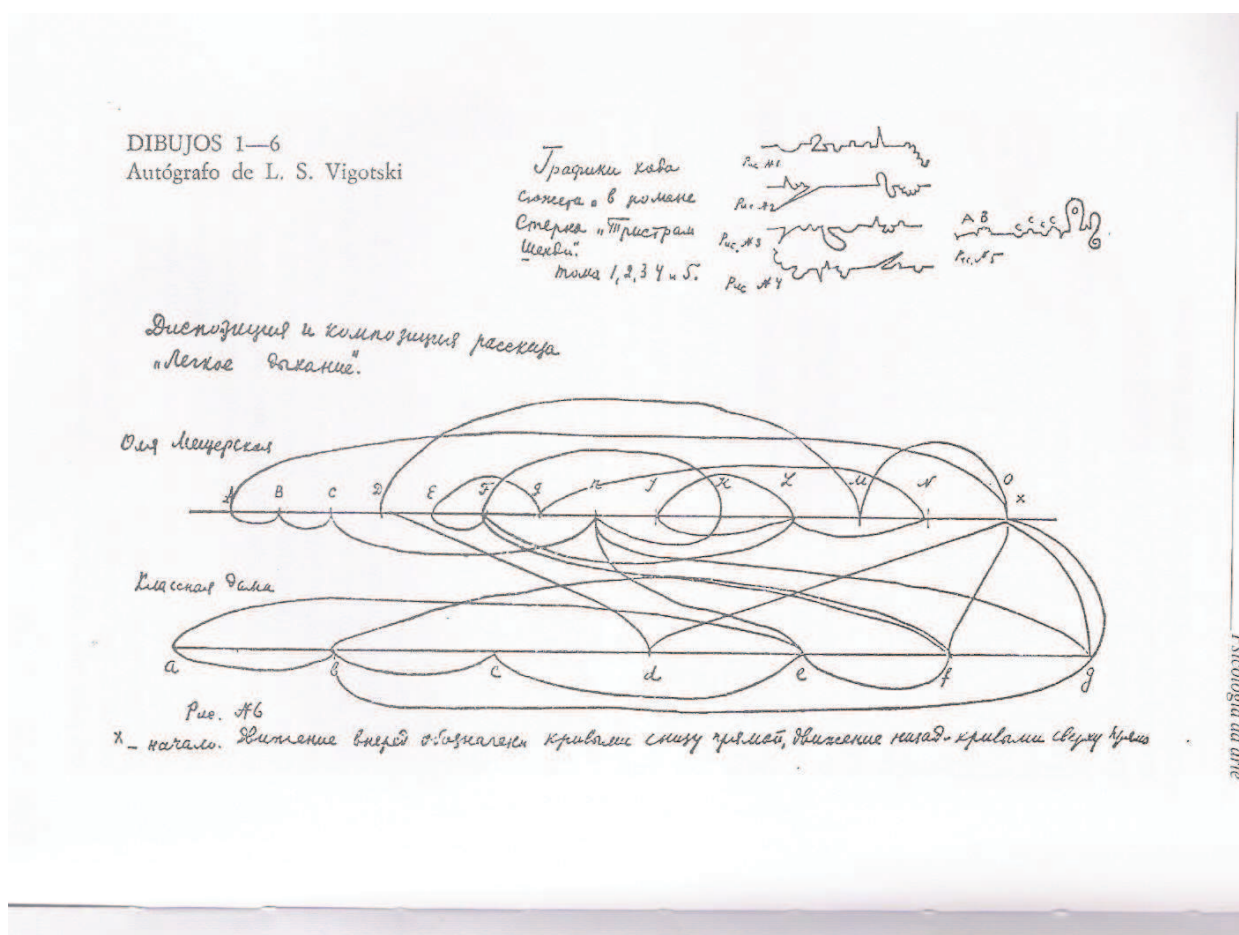 DIBUJOS 1—6
Autógrafo de L. S. Vigotski
Графики хода
сюжета в романе
Стерна „Тристрам
Шенди".
тома 1, 2, 3 4 и 5.
Рис №1
Рис. №2
Рис. №3
Рис №4
A B C C C
Рис. №5
Диспозиция и композиция рассказа
„Легкое дыхание".
Оля Мещерская
A B C D E F G H J K L M N O x
Классная дама
a b c d e f g
Рис. №6
x – начало. Движение вперед обозначен кривыми снизу прямой, движение назад - кривыми сверху
Psicología del arte